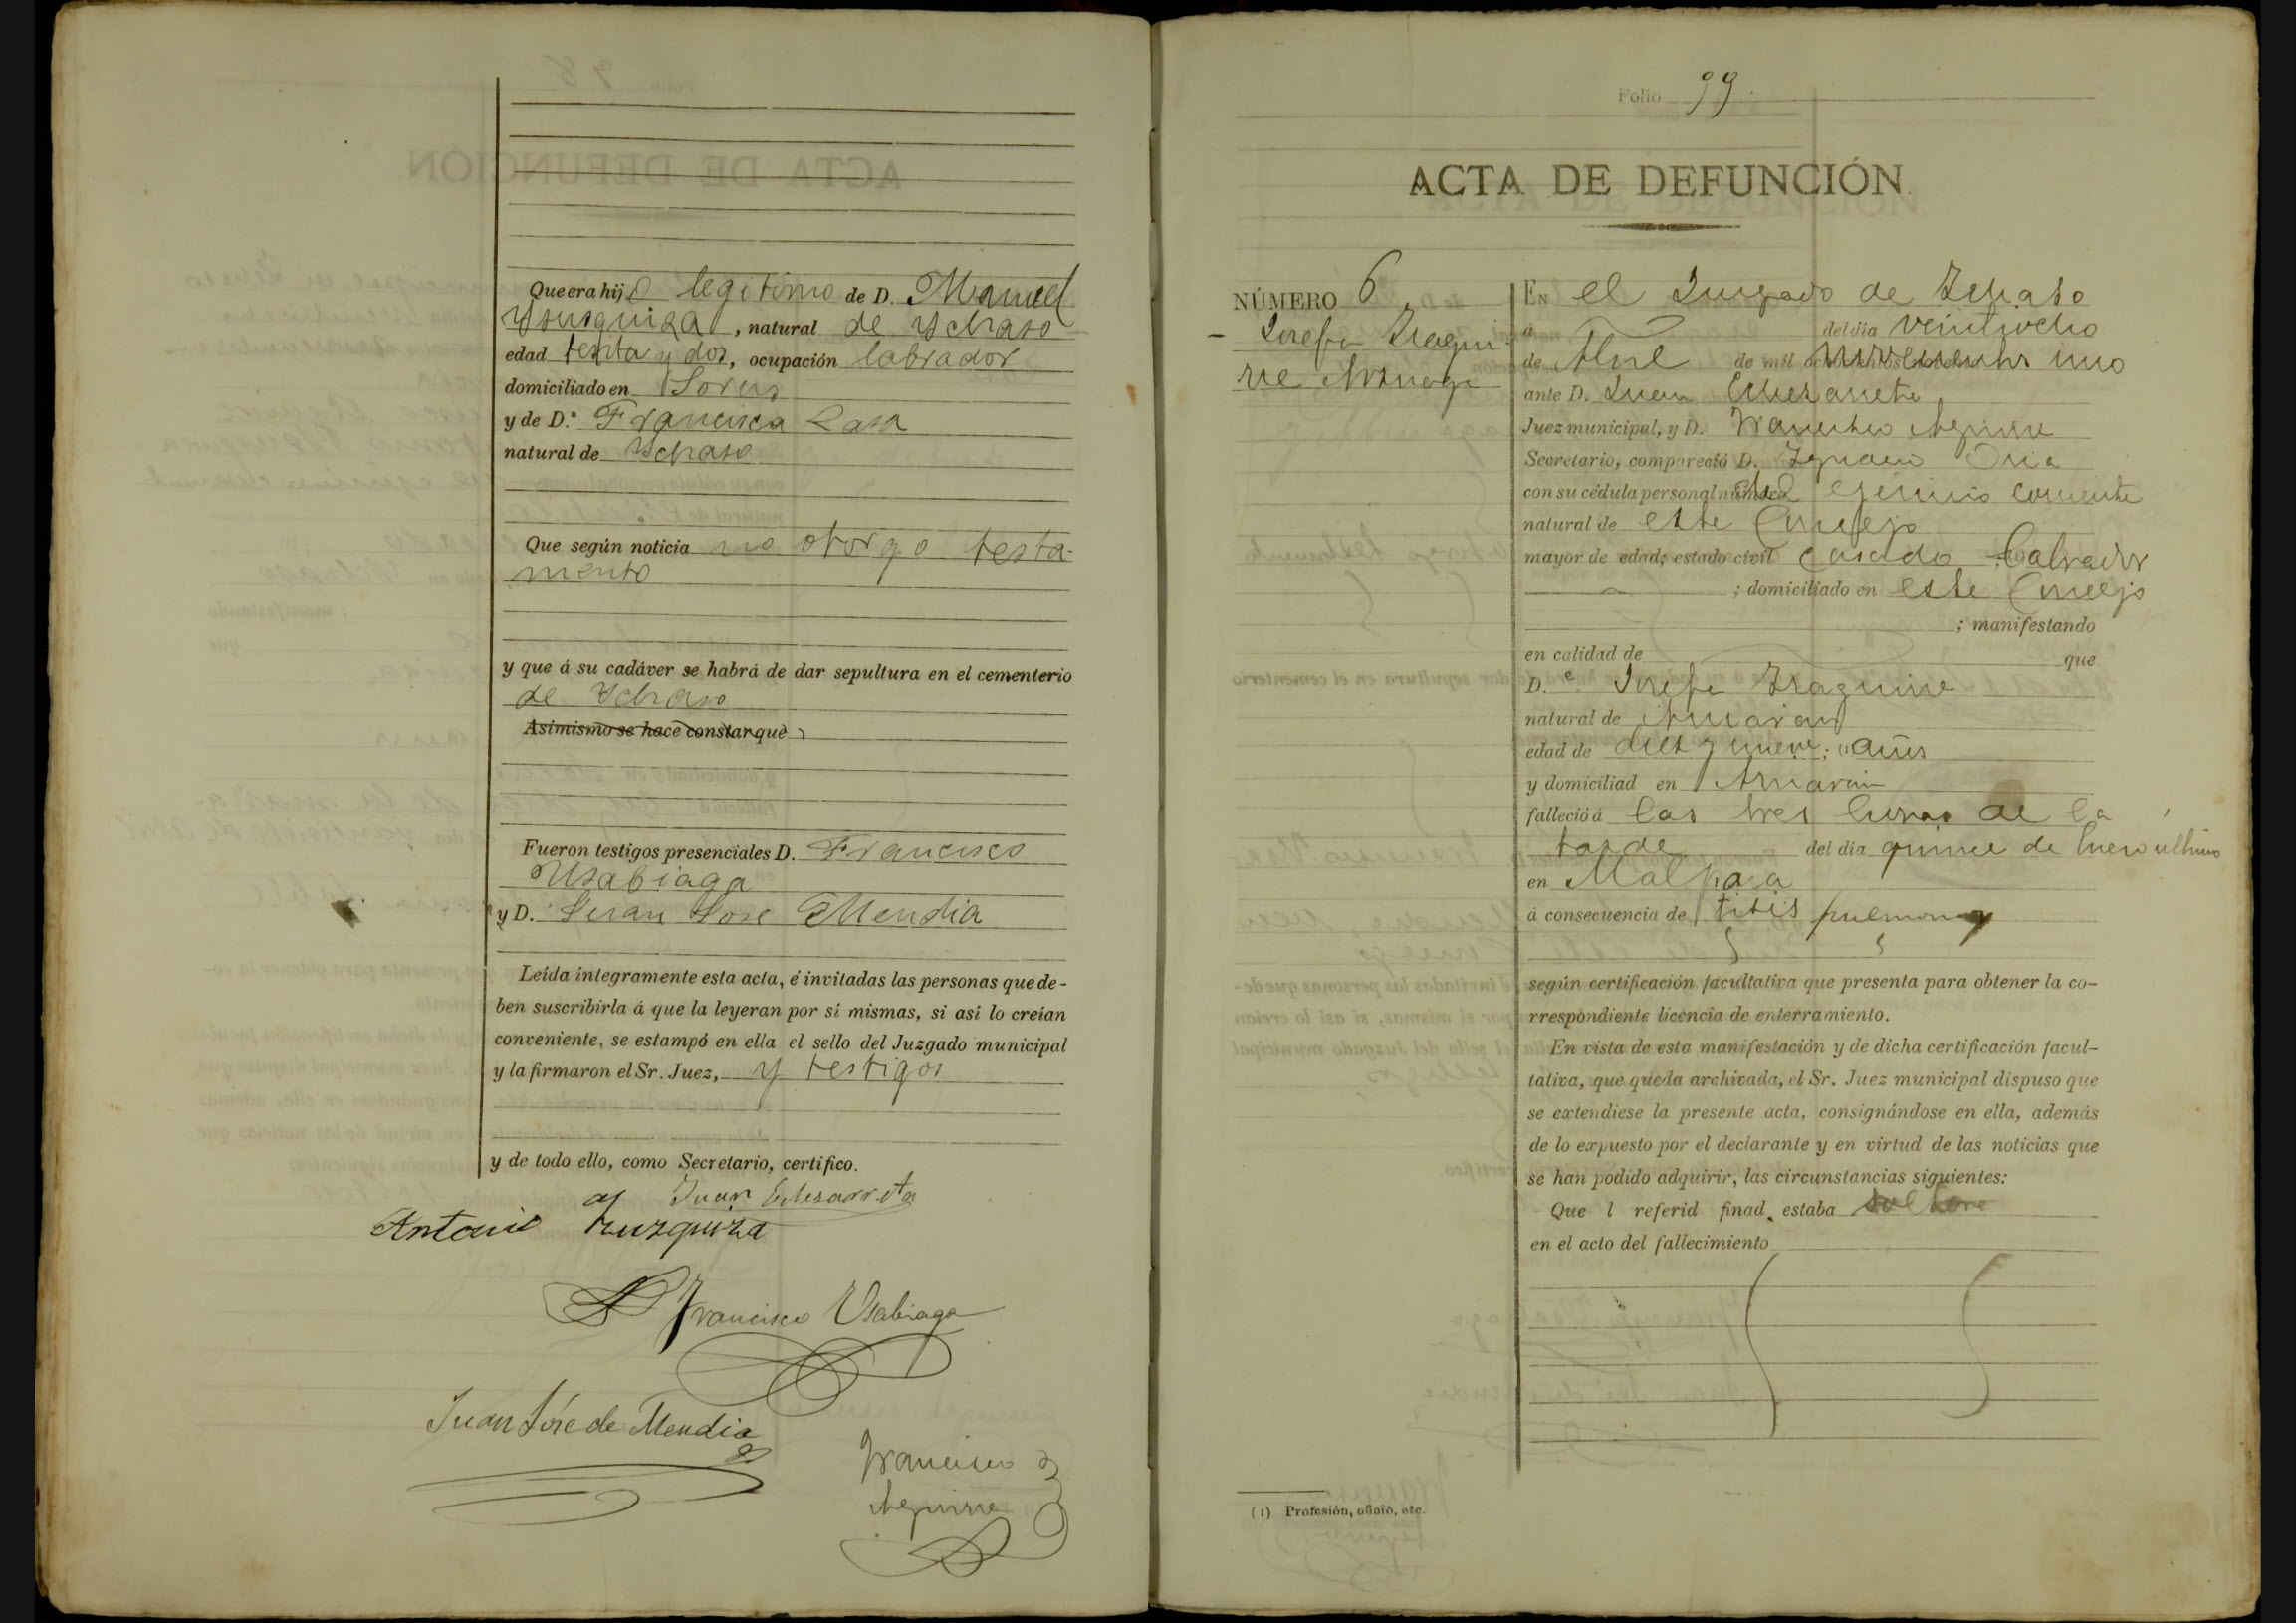 Que era hijo legitimo de D. Manuel
Ysusquiza, natural de Ychaso
edad tenta y dos, ocupación labrador
domiciliado en
y de D.ª Francisca Lasa
natural de Ychaso
Que según noticia no otorgo testa-
mento
y que á su cadáver se habrá de dar sepultura en el cementerio
de Ychaso
Asimismo se hace constar que
Fueron testigos presenciales D. Francisco
Usabiaga
y D. Juan Jose Mendia
Leída íntegramente esta acta, é invitadas las personas que de-
ben suscribirla á que la leyeran por sí mismas, si así lo creían
conveniente, se estampó en ella el sello del Juzgado municipal
y la firmaron el Sr. Juez, y testigos
y de todo ello, como Secretario, certifico.
Juan Echezarreta
Antonio Yzuzquiza
Francisco Usabiaga
Juan José de Mendia
Francisco
Aguirre
Folio 99.
ACTA DE DEFUNCIÓN
NÚMERO 6
Josefa Izagui-
rre
EN el Juzgado de Ichaso
á del dia veintiocho
de de mil ochocientos novecientos uno
ante D. Juan Echezarreta
Juez municipal, y D. Francisco Aguirre
Secretario, compareció D. Ignacio Oria
con su cédula personal número del ejercicio corriente
natural de este Concejo
mayor de edad; estado civil casado labrador
; domiciliado en este Concejo
; manifestando
en calidad de que
D.ª Josefa Izaguirre
natural de Arriaran
edad de diez y nueve; (1) años
y domiciliad en Arriaran
falleció á las tres horas de la
tarde del dia quince de Enero ultimo
en
á consecuencia de tisis pulmonar
según certificación facultativa que presenta para obtener la co-
rrespondiente licencia de enterramiento.
En vista de esta manifestación y de dicha certificación facul-
tativa, que queda archivada, el Sr. Juez municipal dispuso que
se extendiese la presente acta, consignándose en ella, además
de lo expuesto por el declarante y en virtud de las noticias que
se han podido adquirir, las circunstancias siguientes:
Que l referid finad estaba soltera
en el acto del fallecimiento
(1) Profesión, oficio, etc.